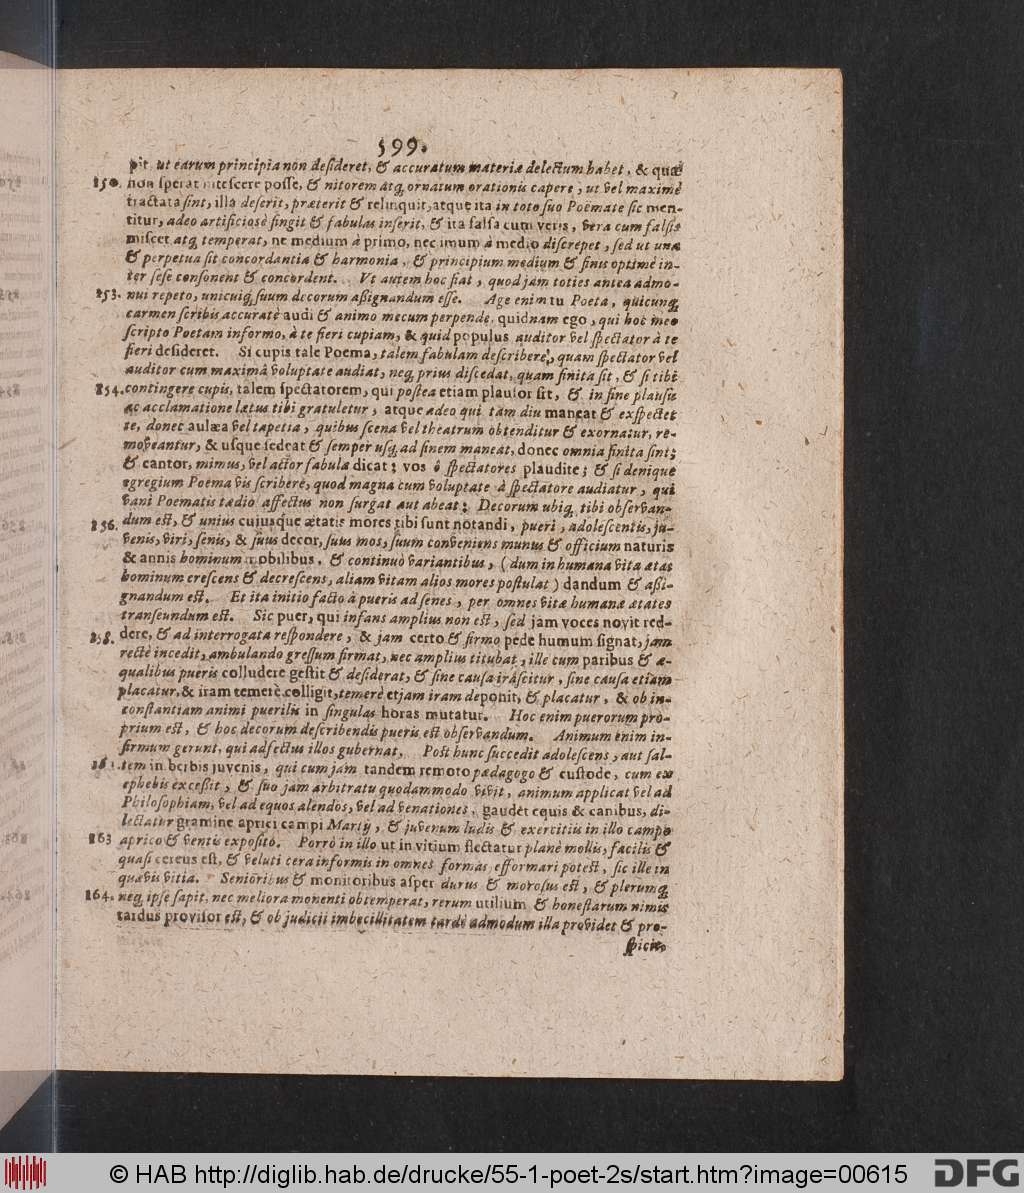 599.
pit, ut earum principia non desideret, & accuratum materiæ delectum habet, & quæ
150. non sperat nitescere posse, & nitorem atq; ornatum orationis capere, ut vel maximè
tractata sint, illa deserit, præterit & relinquit, atque ita in toto suo Poëmate sic men-
titur, adeo artificiosè fingit & fabulas inserit, & ita falsa cum veris, vera cum falsis
miscet atq; temperat, ne medium à primo, nec imum à medio discrepet, sed ut una
& perpetua sit concordantia & harmonia, & principium medium & finis optimè in-
ter sese consonent & concordent. Ut autem hoc fiat, quod jam toties antea admo-
153. nui repeto, unicuiq; suum decorum assignandum esse. Age enim tu Poëta, quicunq;
carmen scribis accuratè audi & animo mecum perpende, quidnam ego, qui hoc meo
scripto Poëtam informo, à te fieri cupiam, & quid populus auditor vel spectator à te
fieri desideret. Si cupis tale Poema, talem fabulam describere, quam spectator vel
auditor cum maximâ voluptate audiat, neq; prius discedat, quam finita sit, & si tibi
154. contingere cupis, talem spectatorem, qui postea etiam plausor sit, & in fine plausu
ac acclamatione lætus tibi gratuletur, atque adeo qui tam diu maneat & exspectet
te, donec aulæa vel tapetia, quibus scena vel theatrum obtenditur & exornatur, re-
moveantur, & usque sedeat & semper usq; ad finem maneat, donec omnia finita sint;
& cantor, mimus, vel actor fabulæ dicat; vos ô spectatores plaudite; & si denique
egregium Poëma vis scribere, quod magna cum voluptate à spectatore audiatur, qui
vani Poëmatis tædio affectus non surgat aut abeat; Decorum ubiq; tibi observan-
156. dum est, & unius cujusque ætatis mores tibi sunt notandi, pueri, adolescentis, ju-
venis, viri, senis, & suus decor, suus mos, suum conveniens munus & officium naturis
& annis hominum mobilibus, & continuò variantibus, (dum in humana vita ætas
hominum crescens & decrescens, aliam vitam alios mores postulat) dandum & assi-
gnandum est. Et ita initio facto à pueris ad senes, per omnes vitæ humanæ ætates
transeundum est. Sic puer, qui infans amplius non est, sed jam voces novit red-
158. dere, & ad interrogata respondere, & jam certo & firmo pede humum signat, jam
rectè incedit, ambulando gressum firmat, nec amplius titubat, ille cum paribus & æ-
qualibus pueris colludere gestit & desiderat, & sine causa iráscitur, sine causa etiam
placatur, & iram temerè colligit, temerè etjam iram deponit, & placatur, & ob in-
constantiam animi puerilis in singulas horas mutatur. Hoc enim puerorum pro-
prium est, & hoc decorum describendis pueris est observandum. Animum enim in-
firmum gerunt, qui adfectus illos gubernat. Post hunc succedit adolescens, aut sal-
161. tem in berbis juvenis, qui cum jam tandem remoto pædagogo & custode, cum ex
ephebis excessit, & suo jam arbitratu quodammodo vivit, animum applicat vel ad
Philosophiam, vel ad equos alendos, vel ad venationes, gaudet equis & canibus, di-
lectatur gramine aprici campi Martij, & juvenum ludis & exercitiis in illo campo
163 aprico & ventis exposito. Porrò in illo ut in vitium flectatur planè mollis, facilis &
quasi cereus est, & veluti cera informis in omnes formas efformari potest, sic ille in
quævis vitia. Senioribus & monitoribus asper durus & morosus est, & plerumq;
164. neq; ipse sapit, nec meliora monenti obtemperat, rerum utilium & honestarum nimis
tardus provisor est, & ob judicii imbecillitatem tardè admodum illa providet & pro-
spicit,
© HAB http://diglib.hab.de/drucke/55-1-poet-2s/start.htm?image=00615
DFG